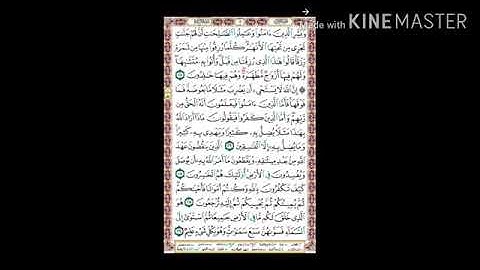 Made with KINEMASTER
وَبَشِّرِ الَّذِينَ ءَامَنُوا وَعَمِلُوا الصَّٰلِحَٰتِ أَنَّ لَهُمْ جَنَّٰتٍ
تَجْرِى مِن تَحْتِهَا الْأَنْهَٰرُ كُلَّمَا رُزِقُوا مِنْهَا مِن ثَمَرَةٍ
رِّزْقًا قَالُوا هَٰذَا الَّذِى رُزِقْنَا مِن قَبْلُ وَأُتُوا بِهِ مُتَشَٰبِهًا
وَلَهُمْ فِيهَا أَزْوَٰجٌ مُّطَهَّرَةٌ وَهُمْ فِيهَا خَٰلِدُونَ
إِنَّ اللَّهَ لَا يَسْتَحْىِ أَن يَضْرِبَ مَثَلًا مَّا بَعُوضَةً فَمَا
فَوْقَهَا فَأَمَّا الَّذِينَ ءَامَنُوا فَيَعْلَمُونَ أَنَّهُ الْحَقُّ مِن
رَّبِّهِمْ وَأَمَّا الَّذِينَ كَفَرُوا فَيَقُولُونَ مَاذَا أَرَادَ اللَّهُ
بِهَٰذَا مَثَلًا يُضِلُّ بِهِ كَثِيرًا وَيَهْدِى بِهِ كَثِيرًا
وَمَا يُضِلُّ بِهِ إِلَّا الْفَٰسِقِينَ الَّذِينَ يَنقُضُونَ عَهْدَ
اللَّهِ مِن بَعْدِ مِيثَٰقِهِ وَيَقْطَعُونَ مَا أَمَرَ اللَّهُ بِهِ أَن يُوصَلَ
وَيُفْسِدُونَ فِى الْأَرْضِ أُولَٰئِكَ هُمُ الْخَٰسِرُونَ
كَيْفَ تَكْفُرُونَ بِاللَّهِ وَكُنتُمْ أَمْوَٰتًا فَأَحْيَٰكُمْ
ثُمَّ يُمِيتُكُمْ ثُمَّ يُحْيِيكُمْ ثُمَّ إِلَيْهِ تُرْجَعُونَ هُوَ
الَّذِى خَلَقَ لَكُم مَّا فِى الْأَرْضِ جَمِيعًا ثُمَّ اسْتَوَىٰ إِلَى
السَّمَاءِ فَسَوَّىٰهُنَّ سَبْعَ سَمَٰوَٰتٍ وَهُوَ بِكُلِّ شَىْءٍ عَلِيمٌ